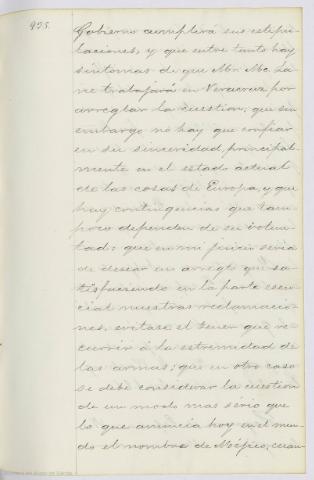 955.
Gobierno cumplirá sus estipu-
laciones, y que entre tanto hay
síntomas de que Mr. Mc. La-
ne trabajará en Veracruz por
arreglar la cuestion; que sin
embargo no hay que confiar
en su sinceridad, principal-
mente en el estado actual
de las cosas de Europa, y que
hay contingencias que tam-
poco dependen de su volun-
tad: que en mi juicio seria
de desear un arreglo que sa-
tisfaciendo en la parte esen-
cial nuestras reclamacio-
nes, evitase el tener que re-
currir á la estremidad de
las armas; que en otro caso
se debe considerar la cuestion
de un modo mas sério que
lo que anuncia hoy en el mun-
do el nombre de Méjico, cuan-